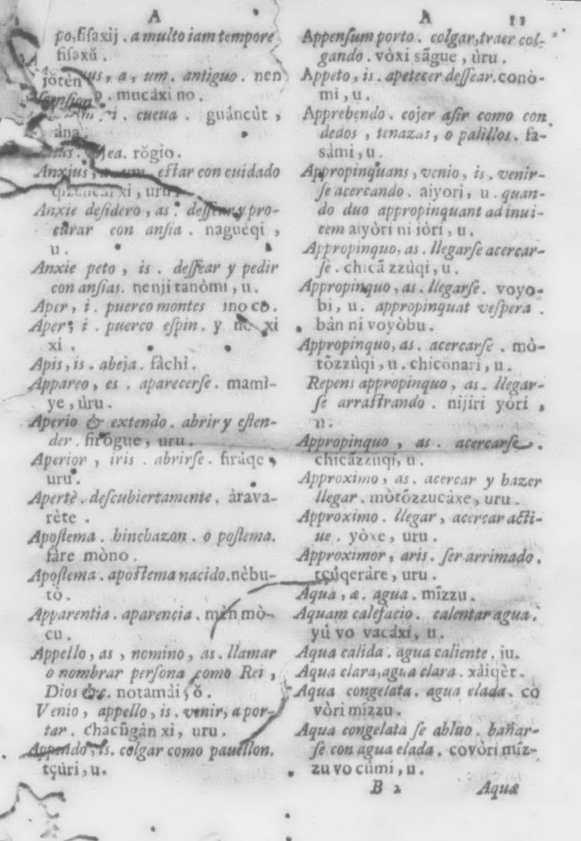 A
po, fiſaxij . a multo iam tempore
fiſaxŭ .
us, a, um. antiguo . nen
jŏten
. mucáxi no .
i . cueua . guáncút,
àna
ea. rŏgio.
Anxius, a, um. eſtar con cuidado
xi, uru
Anxie deſidero, as. deſſear y pro-
curar con anſia . naguéqi,
u.
Anxie peto, is . deſſear y pedir
con anſias. nenji tanòmi, u.
Aper, i . puerco montes ino co.
Aper, i . puerco eſpin. y xi
xi .
Apis, is. abeja. fàchi.
Appareo, es . aparecerſe . mamî-
ye, ùru.
Aperio & extendo. abrir y eſten-
der. firògue, uru.
Aperior, iris . abrirſe. firàqe,
uru.
Apertè. deſcubiertamente. àrava-
rète .
Apoſtema . hinchazon . o poſtema.
fàre mòno.
Apoſtema. apoſtema nacido. nèbu-
tò.
Apparentia. aparencia. min mò-
cu.
Appello, as, nomino, as. llamar
o nombrar perſona como Rei,
Dios &c. notamài, ŏ.
Venio, appello, is. venir, a por-
tar. chacŭgàn xi, uru.
Appendo, is. colgar como pauellon.
tçùri, u.
A 11
Appenſum porto. colgar, traer col-
gando. vòxi sāgue, ùru.
Appeto, is. apetecer deſſear. conò-
mi, u.
Apprehendo. cojer aſir como con
dedos, tenazas, o palillos. fa-
sàmi, u.
Appropinquans, venio, is. venir-
ſe acercando. aiyori, u. quan-
do duo appropinquant ad inui-
cem aiyòri ni iòri, u.
Appropinquo, as. llegarſe acercar-
ſe. chicā zzùqi, u.
Appropinquo, as. llegarſe. voyo-
bi, u. appropinquat veſpera .
bàn ni voyòbu.
Appropinquo, as. acercarſe. mò-
tōzzùqi, u. chicōnari, u.
Repens appropinquo, as. llegar-
ſe arraſtrando. nijiri yòri,
u.
Appropinquo, as. acercarſe.
chicāzzuqi, u.
Approximo, as. acercar y hazer
llegar. mòtōzzucàxe, uru.
Approximo. llegar, acercar acti-
ue. yòxe, uru.
Approximor, aris. ſer arrimado.
tçŭqeràre, uru.
Aqua, æ. agua. mīzzu.
Aquam calefacio. calentar agua.
yú vo vacáxi, u.
Aqua calida. agua caliente. iu.
Aqua clara, agua clara. xàiqèt.
Aqua congelata. agua elada. co
vòri mizzu.
Aqua congelata ſe abluo. bañar-
ſe con agua elada. covòri mīz-
zu vo cùmi, u.
B 2 Aquæ